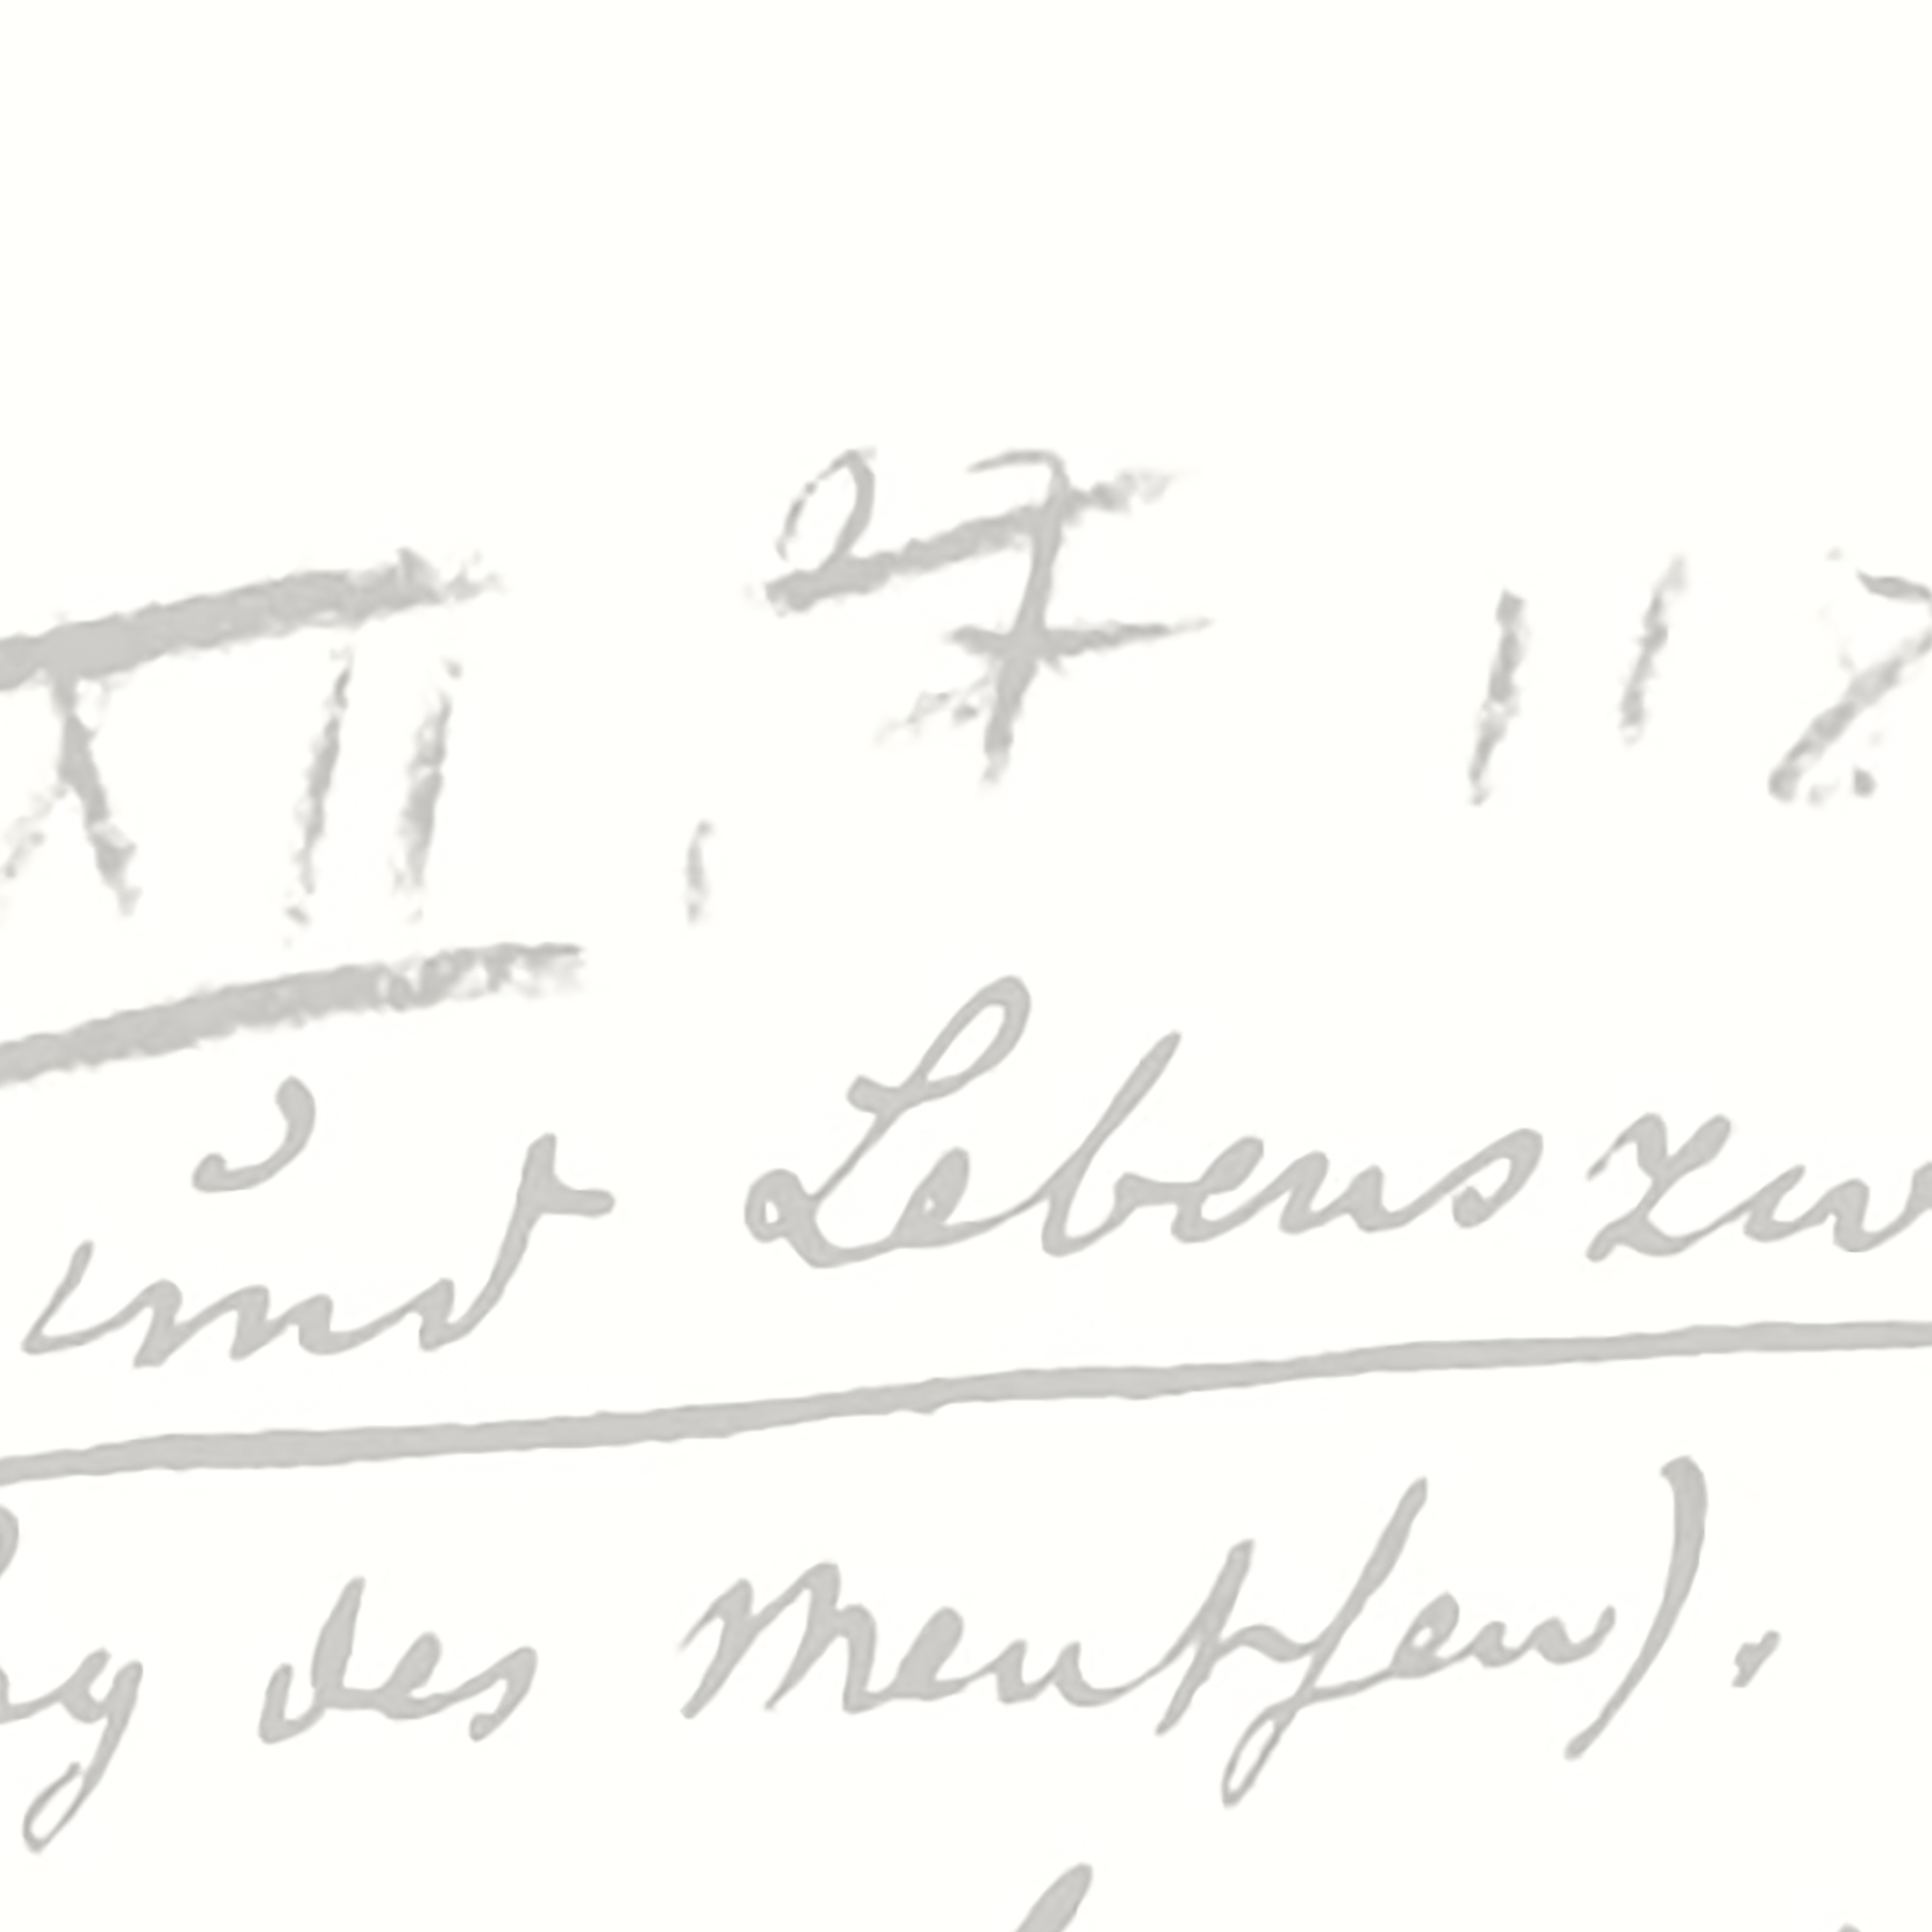 XII, 27 112
und Lebenszw
g des Menschen).